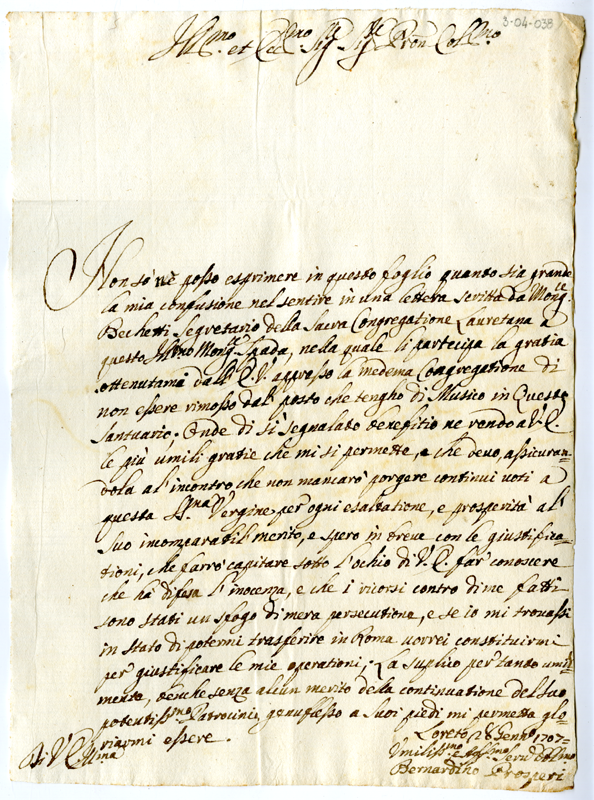 3-04-038
Ill.mo et Ecc.mo Sig.re Sig.re Pron Col.mo
Non sò nè posso esprimere in questo foglio quanto sia grande
la mia confusione nel sentire in una lettera scritta da Mong.re
Bechetti Segretario della Sacra Congregatione Lauretana a
questo Ill.mo Mong.re Spada, nella quale li partecipa la gratia
ottenutama dall'E.V. appresso la medema Congregatione di
non essere rimosso dal' posto che tengho di Musico in Questo
Santuario. Onde di sì segnalato benefitio ne rendo a V.E.
le più umili gratie che mi si permette, e che devo, assicuran-
dola al'incontro che non mancarò porgere continui voti a
questa S.ma Vergine per ogni esaltatione, e prosperità al'
Suo incomparabil' merito, e spero in breve con le giustifica-
tioni, che farrò capitare sotto l'ochio di V.E. far' conoscere
che hà difesa l'inocenza, e che i ricorsi contro di me fatti
sono stati un sfogo di mera persecutione, e se io mi trovassi
in stato di potermi trasferire in Roma vorrei constituirmi
per' giustificare le mie operationi; La suplico per' tanto umil-
mente, benche senza alcun merito della continuatione del suo
potentiss.mo Patrocinio, genuflesso a suoi piedi mi permetta glo-
riarmi essere.
Loreto 28 Genn.o 1707-
Di V.E. Ill.ma
Umiliss.mo e Serv
Bernardino Prosperi